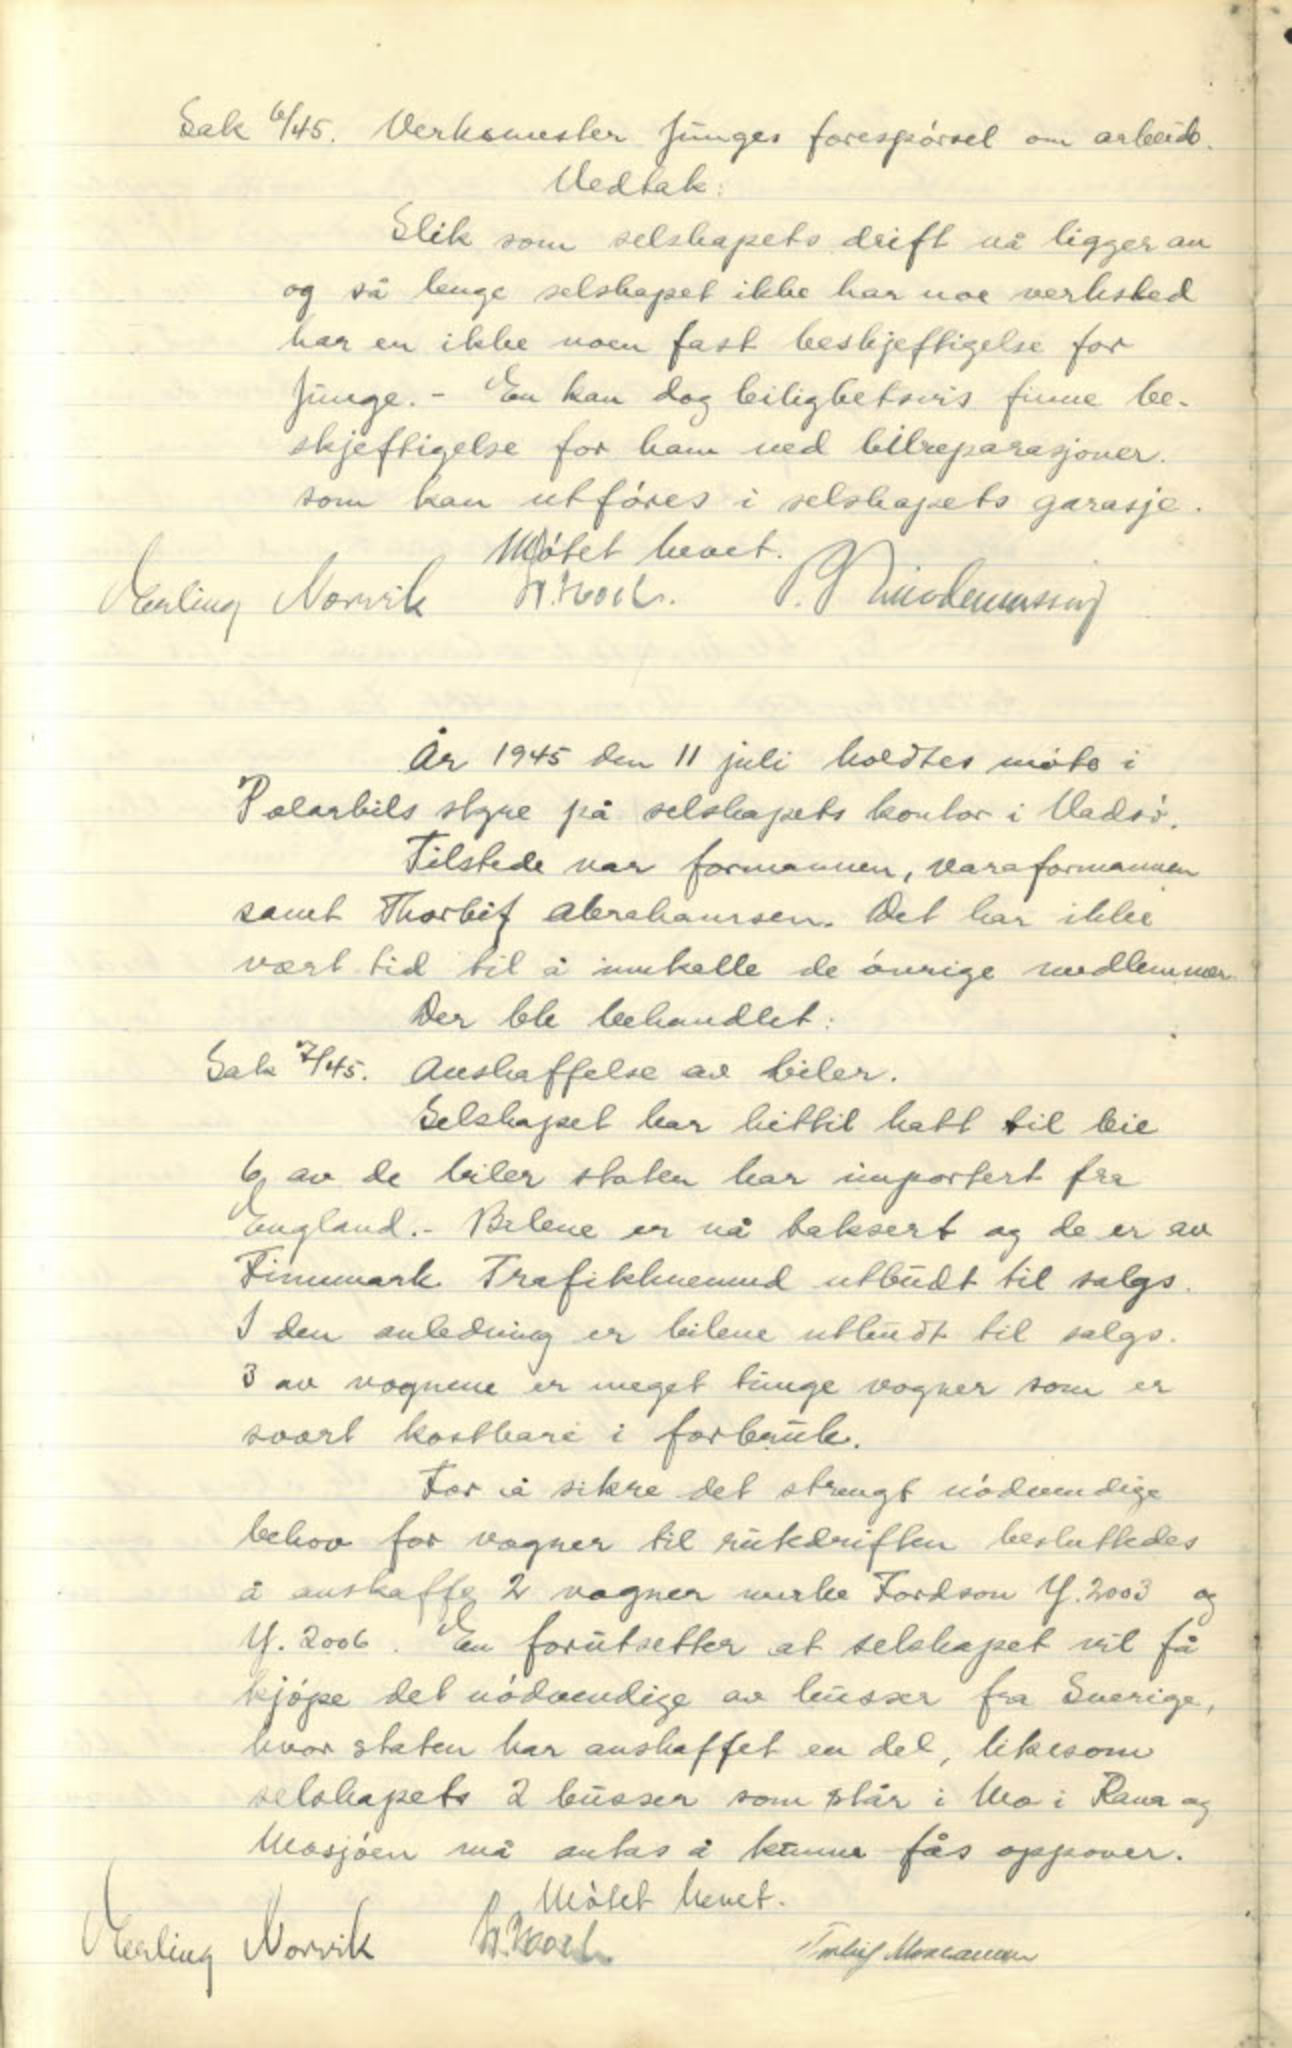 Sak 6/45. Verksmester Junges forespørsel om arbeid.
Vedtak:
Slik som selskapets drift nå ligger an
og så lenge selskapet ikke har noe verksted
har en ikke noen fast beskjeftigelse for
Junge. - En kan dog leilighetsvis finne be-
skjeftigelse for ham ved bilreparasjoner.
som kan utføres i selskapets garasje.
Møtet hevet.
Erling Norvik
År 1945 den 11 juli holdtes møte i
Polarbils styre på selskapets kontor i Vadsø.
Tilstede var formannen, varaformannen
samt Thorleif Abrahamsen. Det har ikke
vært tid til å innkalle de øvrige medlemmer.
Der ble behandlet:
Sak 7/45. Anskaffelse av biler.
Selskapet har hittil hatt til leie
6 av de biler staten har importert fra
England. - Bilene er nå taksert og de er av
Finnmark Trafikknemnd utbudt til salgs.
I den anledning er bilene utbudt til salgs.
3 av vognene er meget tunge vogner som er
svært kostbare i forbruk.
For å sikre det strengt nødvendige
behov for vogner til rutedriften besluttedes
å anskaffe 2 vogner merke Fordson Y. 2003 og
Y. 2006. En forutsetter at selskapet vil få
kjøpe det nødvendige av busser fra Sverige,
hvor staten har anskaffet en del, likesom
selskapets 2 busser som står i Mo i Rana og
Mosjøen må antas å kunne fås oppover.
Møtet hevet.
Erling Norvik